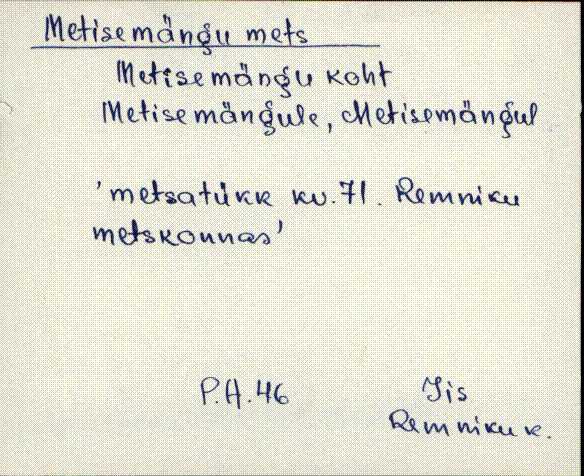 Metisemängu mets
Metisemängu koht
Metisemängule, Metisemängul
'metsatükk kv. 71. Remniku
metskonnas'
P.A. 46
Iis
Remniku k.